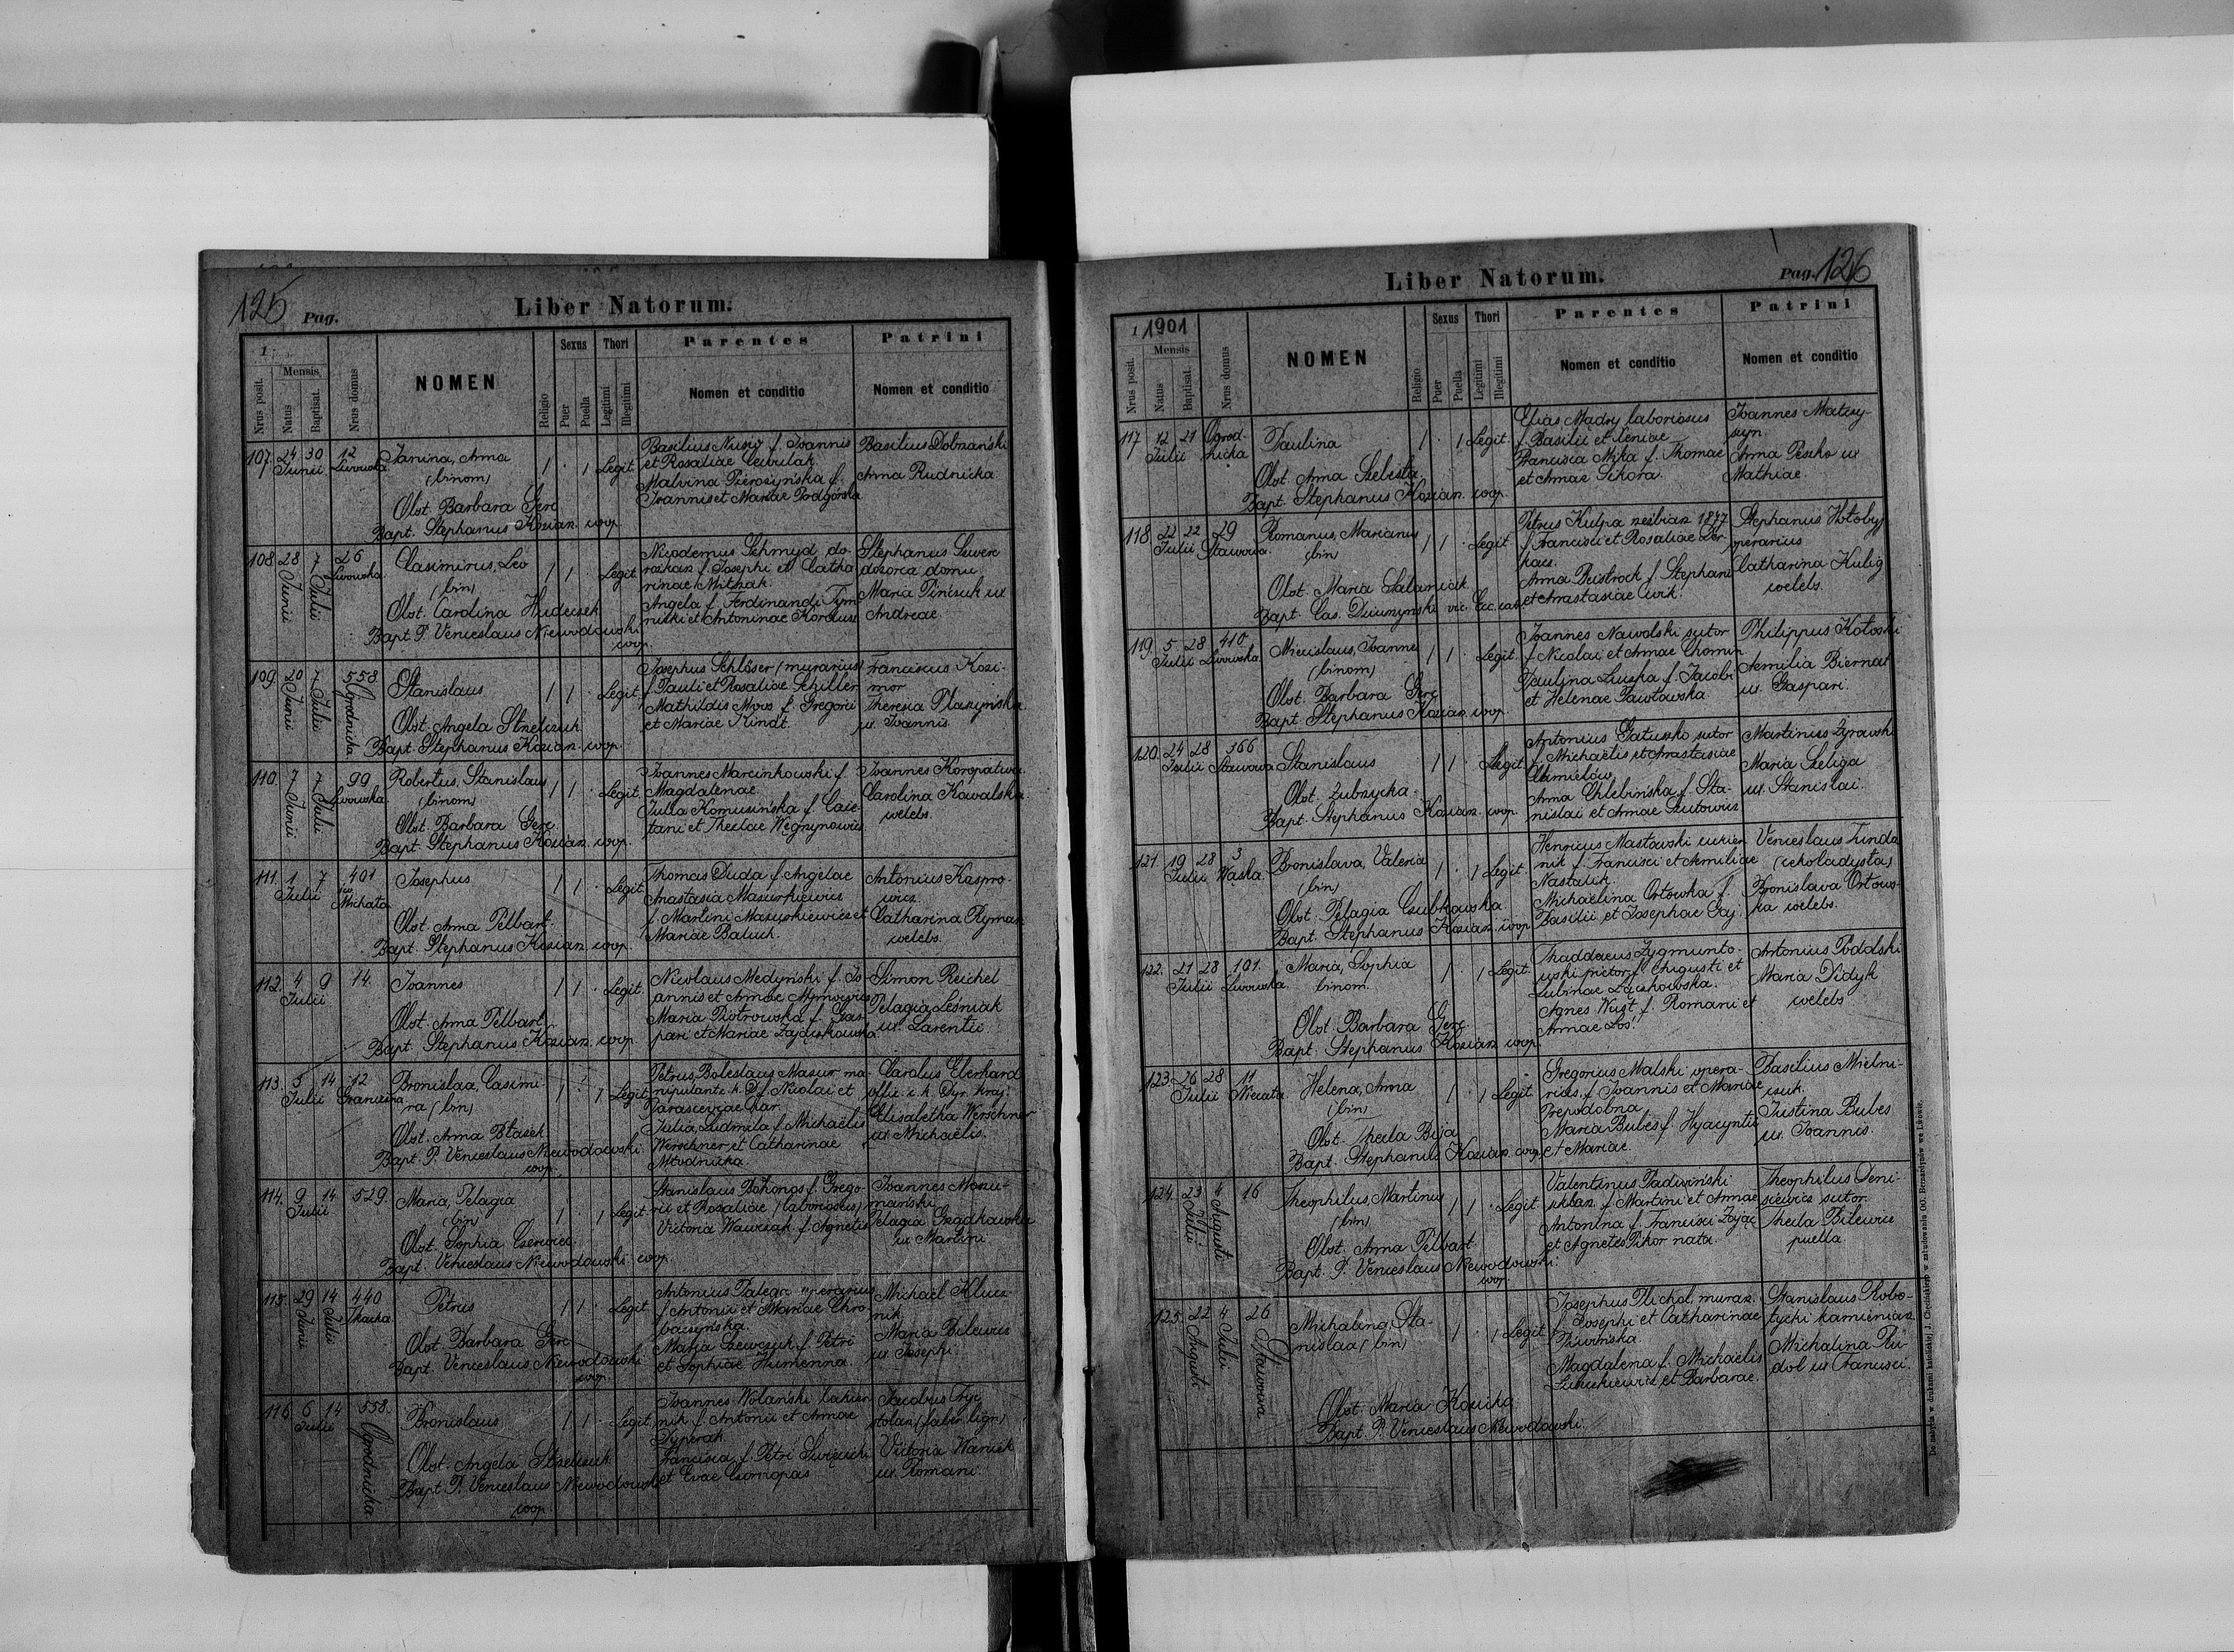 125 Pag.
Liber Natorum.
1
Nrus posit.
Mensis
Natus
Baptisat.
Nrus domus
NOMEN
Religio
Sexus
Puer
Puella
Thori
Legitimi
Illegitimi
Parentes
Nomen et conditio
Patrini
Nomen et conditio
107. 24 30 Junii
12 Lwowska
Janina, Anna
(binom)
Obst. Barbara Gerc
Bapt. Stephanus Kozian. coop.
1 . 1 Legit.
Basilius Nusio f. Joannis
et Rosaliae
Malvina f.
Joannis et Mariae Podgórska
Basilius Dobrzański
Anna Rudnicka
108. 28 Junii 7 Julii
26 Lwowska
Casimirus, Leo
(bin)
Obst. Carolina Hudeczek
Bapt. P. Venceslaus Niewodowski
coop.
1 1 . Legit.
Nicodemus Schmyd, do-
rożkarz f. Josephi et Catha
rinae Mithak.
Angela f. Ferdinandi Tym
nitki et Antoninae
Stephanus Suwere
dozorca domu
Maria Pinczuk ux
Andreae
109. 20 Junii 7 Julii
558 Ogrodnicka
Stanislaus
Obst. Angela Strzelczuk
Bapt. Stephanus Kozian. coop.
1 1 . Legit.
Josephus Schlöser (murarius)
f. Pauli et Rosaliae Schiller
Mathildis Moos f. Gregorii
et Mariae Kindt.
Franciscus Kozi-
mor
Theresia
ux. Joannis.
110. 7 Junii 7 Julii
99 Lwowska
Robertus, Stanislaus
(binom)
Obst. Barbara Gerc.
Bapt. Stephanus Kozian. coop.
1 1 . Legit.
Joannes Marcinkowski f.
Magdalenae
Julia Komusińska f. Caie-
tani et Theclae Węgrzynowicz
Joannes Koropatwa
Carolina Kowalska
welebs.
111. 1 7 Julii
401 św Michała
Josephus
Obst. Anna Pelbart.
Bapt. Stephanus Kozian. coop.
1 1 . Legit.
Thomas Duda f. Angelae
Anastasia Mazurkiewicz
f. Martini Mazurkiewicz et
Mariae Baluch.
Antonius Kaspro-
wicz.
Catharina Rymarz
welebs.
112. 4 9 Julii
14.
Joannes
Obst. Anna Pelbart
Bapt. Stephanus Kozian. coop.
1 1 . Legit.
Nicolaus Medyński f. Jo-
annis et Annae
Maria Piotrowska f. Gas-
pari et Mariae Zajączkowska
Simon Reichel
Pelagia Leśniak
ux. Larentii
113. 5 14 Julii
12 Graniczna
Bronislaa, Casimi-
ra (bin)
Obst. Anna Błaszek
Bapt. P. Venceslaus Niewodowski
coop.
1 . 1 Legit.
Petrus, Boleslaus Mazur ma-
nipulant k. D. f. Nicolai et
Parasceviae Char.
Julia, Ludmila f. Michaëlis
Werschner et Catharinae
Młodnicka
Carolus Eberhard
offic. k. k. Dyr. kraj.
Elisabetha Werschner
ux. Michaëlis.
114. 9 14 Julii
529.
Maria, Pelagia
(bin)
Obst. Sophia Czerwiec
Bapt. Venceslaus Niewodowski coop.
1 . 1 Legit.
Stanislaus Bohonos f. Grego-
rii et Rosaliae (laboriosus)
Victoria Wawrzak f. Agnetis
Joannes Monu-
mański
Pelagia Grządkowska
ux Martini
115. 29 Junii 14 Julii
440 Tkacka.
Petrus
Obst. Barbara Gerc
Bapt. Venceslaus Niewodowski
coop.
1 1 . Legit.
Antonius Palega operarius
f. Antonii et Mariae Chro-
baczyńska.
Maria Szewczuk f. Petri
et Sophiae Humenna.
Michaël Klucz-
nik
Maria Bilewicz
ux Josephi.
116. 6 14 Julii
558. Ogrodnicka
Bronislaus
Obst. Angela Strzelczuk.
Bapt. P. Venceslaus Niewodowski
coop.
1 1 . Legit.
Joannes Wolański lakier-
nik f. Antonii et Annae
Dyperak.
Francisca f. Petri
et Evae Czornopas
Jacobus Fryc
stolarz (faber lign)
Victoria Waniek
ux. Romani.
Liber Natorum.
Pag. 126
1 1901
Nrus posit.
Mensis
Natus
Baptisat.
Nrus domus
NOMEN
Religio
Sexus
Puer
Puella
Thori
Legitimi
Illegitimi
Parentes
Nomen et conditio
Patrini
Nomen et conditio
117. 12 21 Julii
Ogrod-
nicka
Paulina
Obst. Anna Szelista
Bapt. Stephanus Kozian. coop.
1 . 1 Legit.
Elias Mądry laboriosus
f. Basilii et Xeniae
Francisca Mika f. Thomae
et Annae Sikora.
Joannes Matczy-
szyn.
Anna Peszko ux
Mathiae.
118. 22 22 Julii
29 Stawowa.
Romanus, Marianus
(bin)
Obst. Maria Salamiak
Bapt. Cas. Dziurzyński vic.
1 1 . Legit.
Petrus Kulpa 1877
f. Francisci et Rosaliae
Anna f. Stephani
et Anastasiae Cwik.
Stephanus Hołobyj
operarius
Catharina Kulig
welebs.
119. 5 28 Julii
410 Lwowska
Miecislaus, Joannes
(binom)
Obst. Barbara Gerc
Bapt. Stephanus Kozian. coop.
1 1 . Legit.
Joannes Nawolski sutor
f. Nicolai et Annae Chomin
Paulina Liuzka f. Jacobi
et Helenae Pawłowska
Philippus Kołoski
Aemilia Biernat
ux. Gaspari.
120. 24 28 Julii
366 Stawowa
Stanislaus
Obst. Zubrzycka.
Bapt. Stephanus Kozian. coop.
1 1 . Legit.
Antonius Gatuszko sutor
f. Michaëlis et Anastasiae
Chmielów.
Anna Chlebińska f. Sta-
nislai et Annae Lutowicz
Martinus Żyrawski
Maria Szeliga
ux. Stanislai.
121. 19 28 Julii
3 Wąska.
Bronislava, Valeria
(bin)
Obst. Pelagia Czubkowska
Bapt. Stephanus Kozian. coop.
1 . 1 Legit.
Henricus Masłowski cukier-
nik f. Francisci et Aemiliae
Nastalik
Michaëlina Ortowska f.
Basilii et Josephae Gaj.
Venceslaus Tunda
(czekoladysta)
Bronislava Ortows-
ka welebs.
122. 21 28 Julii
101. Lwowska
Maria, Sophia
binom.
Obst. Barbara Gerc.
Bapt. Stephanus Kozian. coop.
1 . 1 Legit.
Thaddaeus Zygmunto-
wski pictor f. Augusti et
Sabinae
Agnes Wujt f. Romani et
Annae Łoś.
Antonius Poddolski
Maria Didyk
welebs.
123. 26 28 Julii
11 Niecała
Helena, Anna
(bin)
Obst. Thecla Bija
Bapt. Stephanus Kozian. coop.
1 . 1 Legit.
Gregorius Malski opera-
rius, f. Joannis et Mariae
Prepodobna
Maria Bubes f. Hyacynthi
et Mariae.
Basilius Mielni-
czuk.
Justina Bubes
ux. Joannis.
124. 23 Julii 4 Augusti
16
Theophilus, Martinus
(bin)
Obst. Anna Pelbart.
Bapt. P. Venceslaus Niewodowski.
coop.
1 1 . Legit.
Valentinus Padwiński
f. Martini et Annae
Antonina f. Francisci Zając
et Agnetis Pikor nata.
Theophilus Deni-
siewicz sutor.
Thecla Bilewicz
puella.
125. 22 Augusti 4 Julii
26 Stawowa
Michalina, Sta-
nislaa (bin)
Obst. Maria Konicka
Bapt. P. Venceslaus Niewodowski.
1 . 1 Legit.
Josephus Plichol, murarz.
f. Josephi et Catharinae
Piwińska.
Magdalena f. Michaëlis
et Barbarae.
Stanislaus Robo-
tycki kamieniarz
Michalina Ru-
dol ux Francisci.
Do nabycia w drukarni katolickiej J. Chęcińskiego w zabudowaniu OO. Bernardynów we Lwowie.